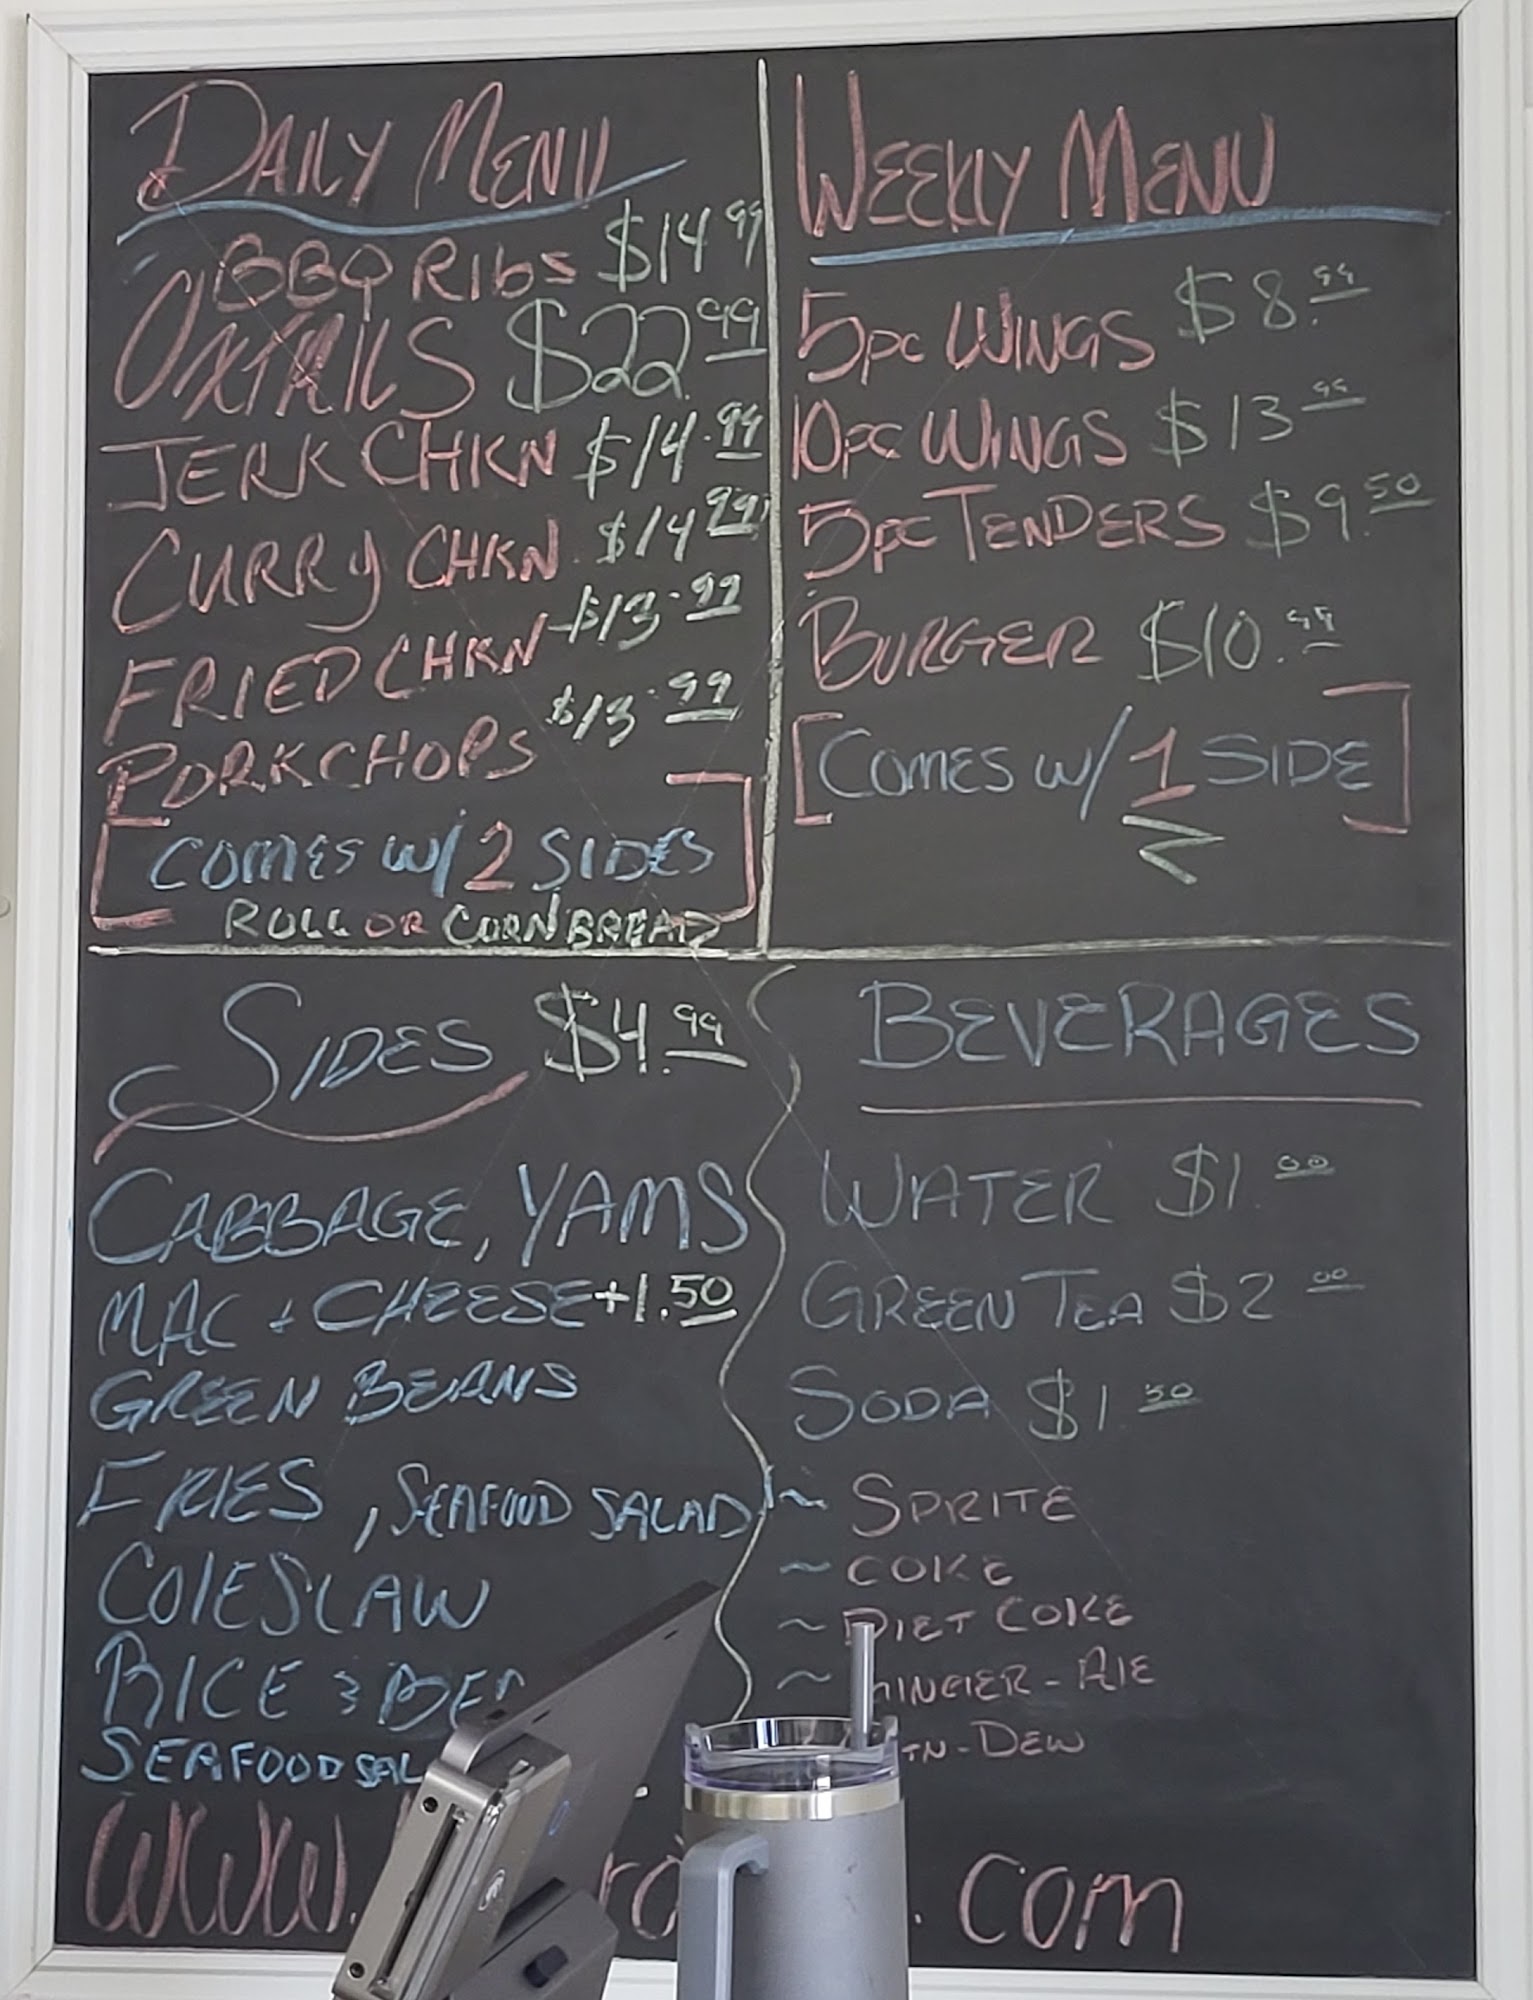 DAILY MENU
BBQ RIbS $14.99
OXTAILS $22.99
JERK CHKN $14.99
CURRY CHKN $14.99
FRIED CHKN $13.99
PORKCHOPS $13.99
COMES W/ 2 SIDES
ROLL OR CORNBREAD
WEEKLY MENU
5pc WINGS $8.99
10pc WINGS $13.99
5pc TENDERS $9.50
BURGER $10.99
[COMES W/ 1 SIDE]
SIDES $4.99
CABBAGE, YAMS
MAC + CHEESE +1.50
GREEN BEANS
FRIES, SEAFOOD SALAD
COLESLAW
RICE &
SEAFOOD
WWW.
.com
BEVERAGES
WATER $1.00
GREEN TEA $2.00
SODA $1.50
~ SPRITE
~ COKE
~ DIET COKE
~ GINGER-ALE
DEW